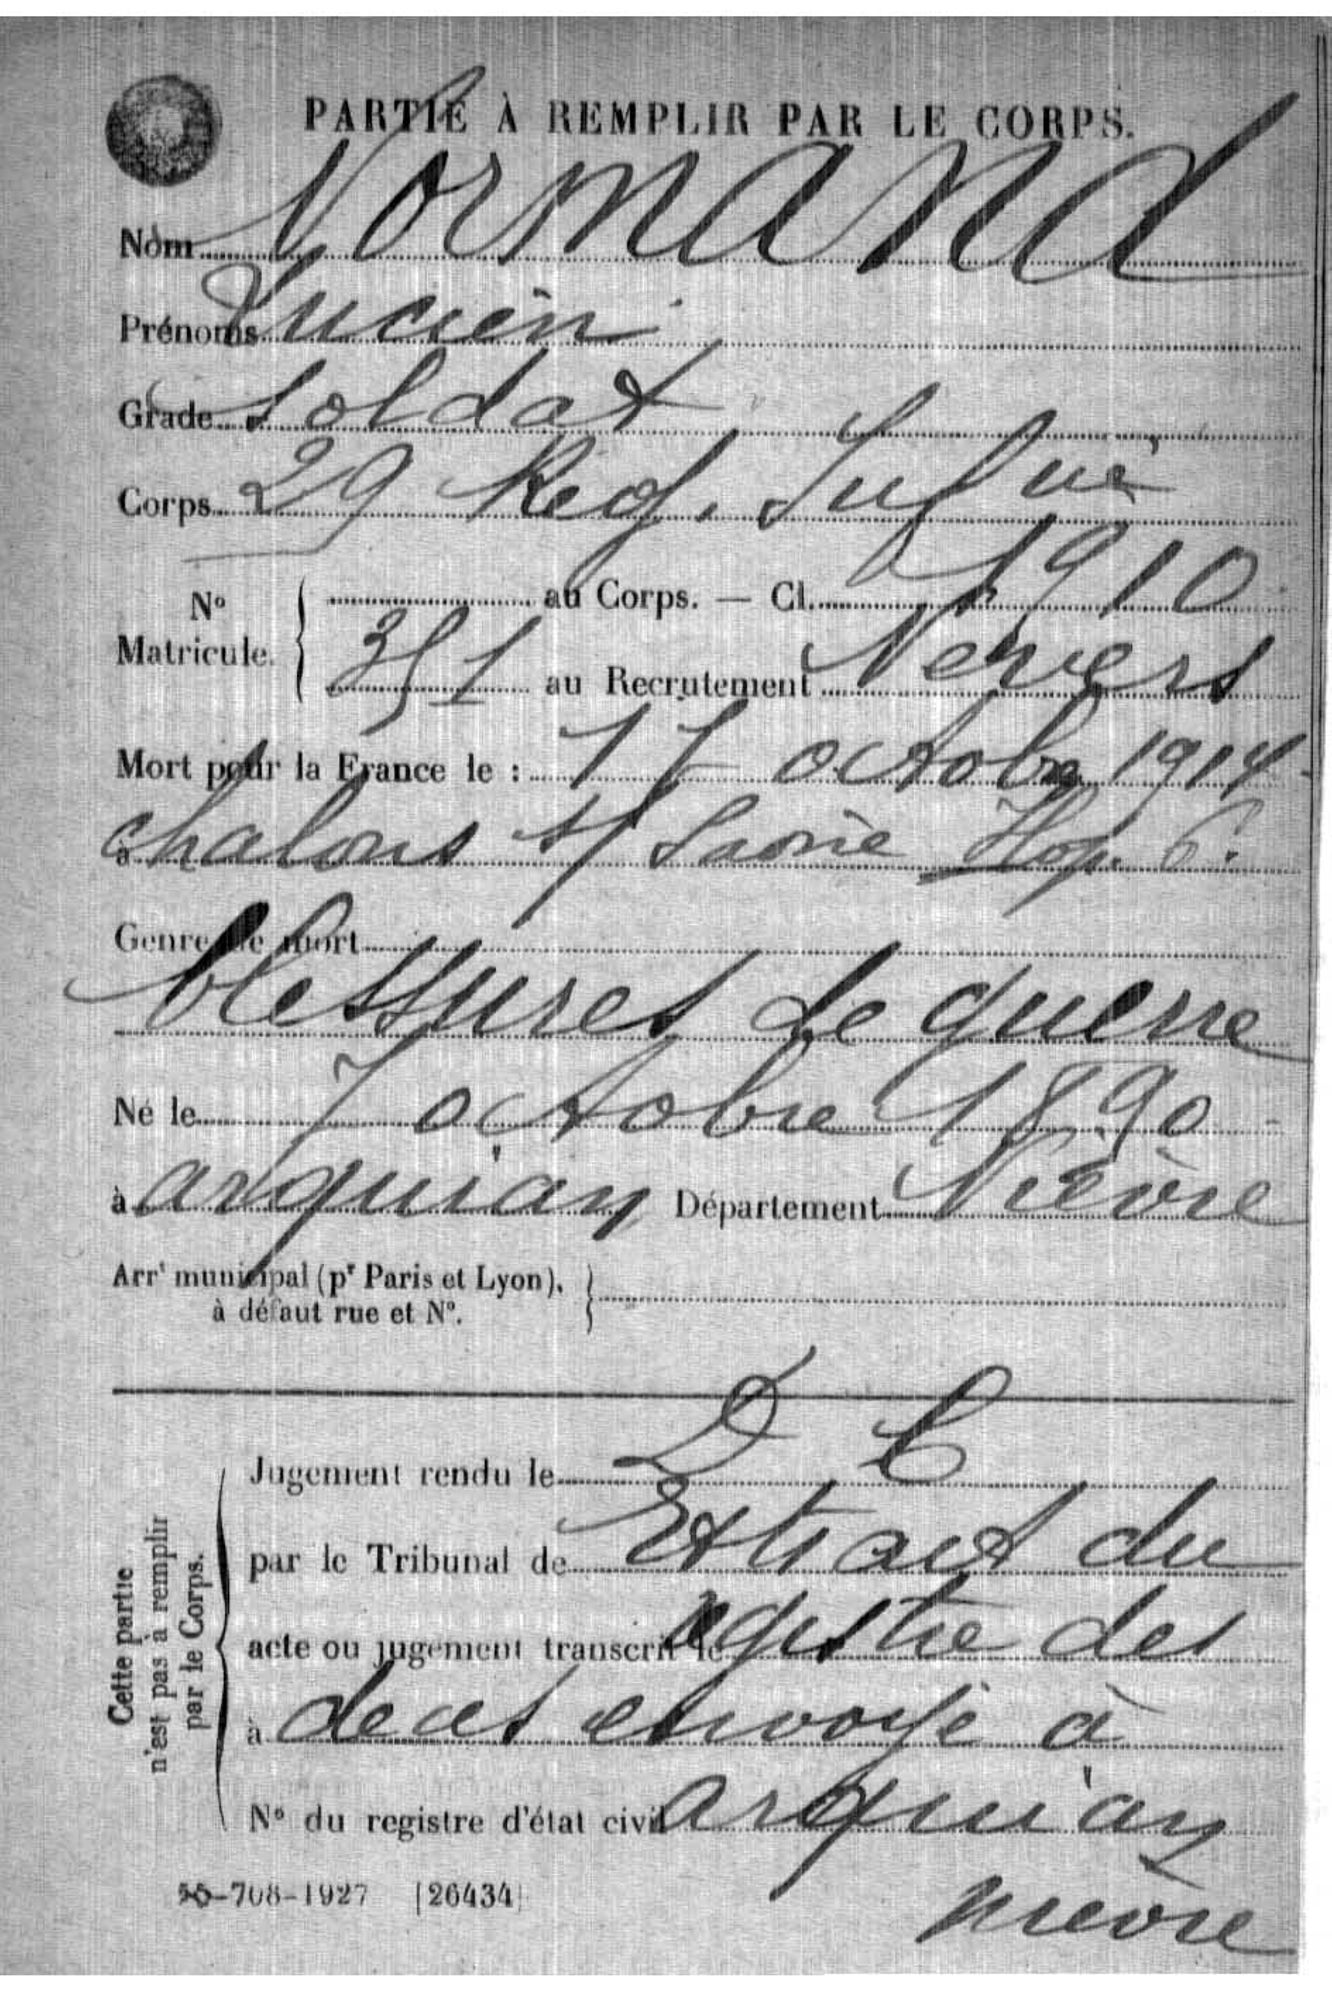 PARTIE À REMPLIR PAR LE CORPS.
Nom Normand
Prénoms Lucien
Grade soldat
Corps 29 Reg. Infie
N° Matricule. { au Corps. — Cl. 1910
351 au Recrutement Nevers
Mort pour la France le : 17 octobre 1914
à chalons s/ Saône Hop. 6.
Genre de mort
blessures de guerre
Né le 7 octobre 1890
à arquian Département Nièvre
Arrt municipal (pr Paris et Lyon),
à défaut rue et N°.
Jugement rendu le D C
par le Tribunal de Extrait du
acte ou jugement transcrit le registre des
à deces envoyé à
N° du registre d'état civil arquian
nievre
Cette partie
n'est pas à remplir
par le Corps.
55-708-1927 [26434]